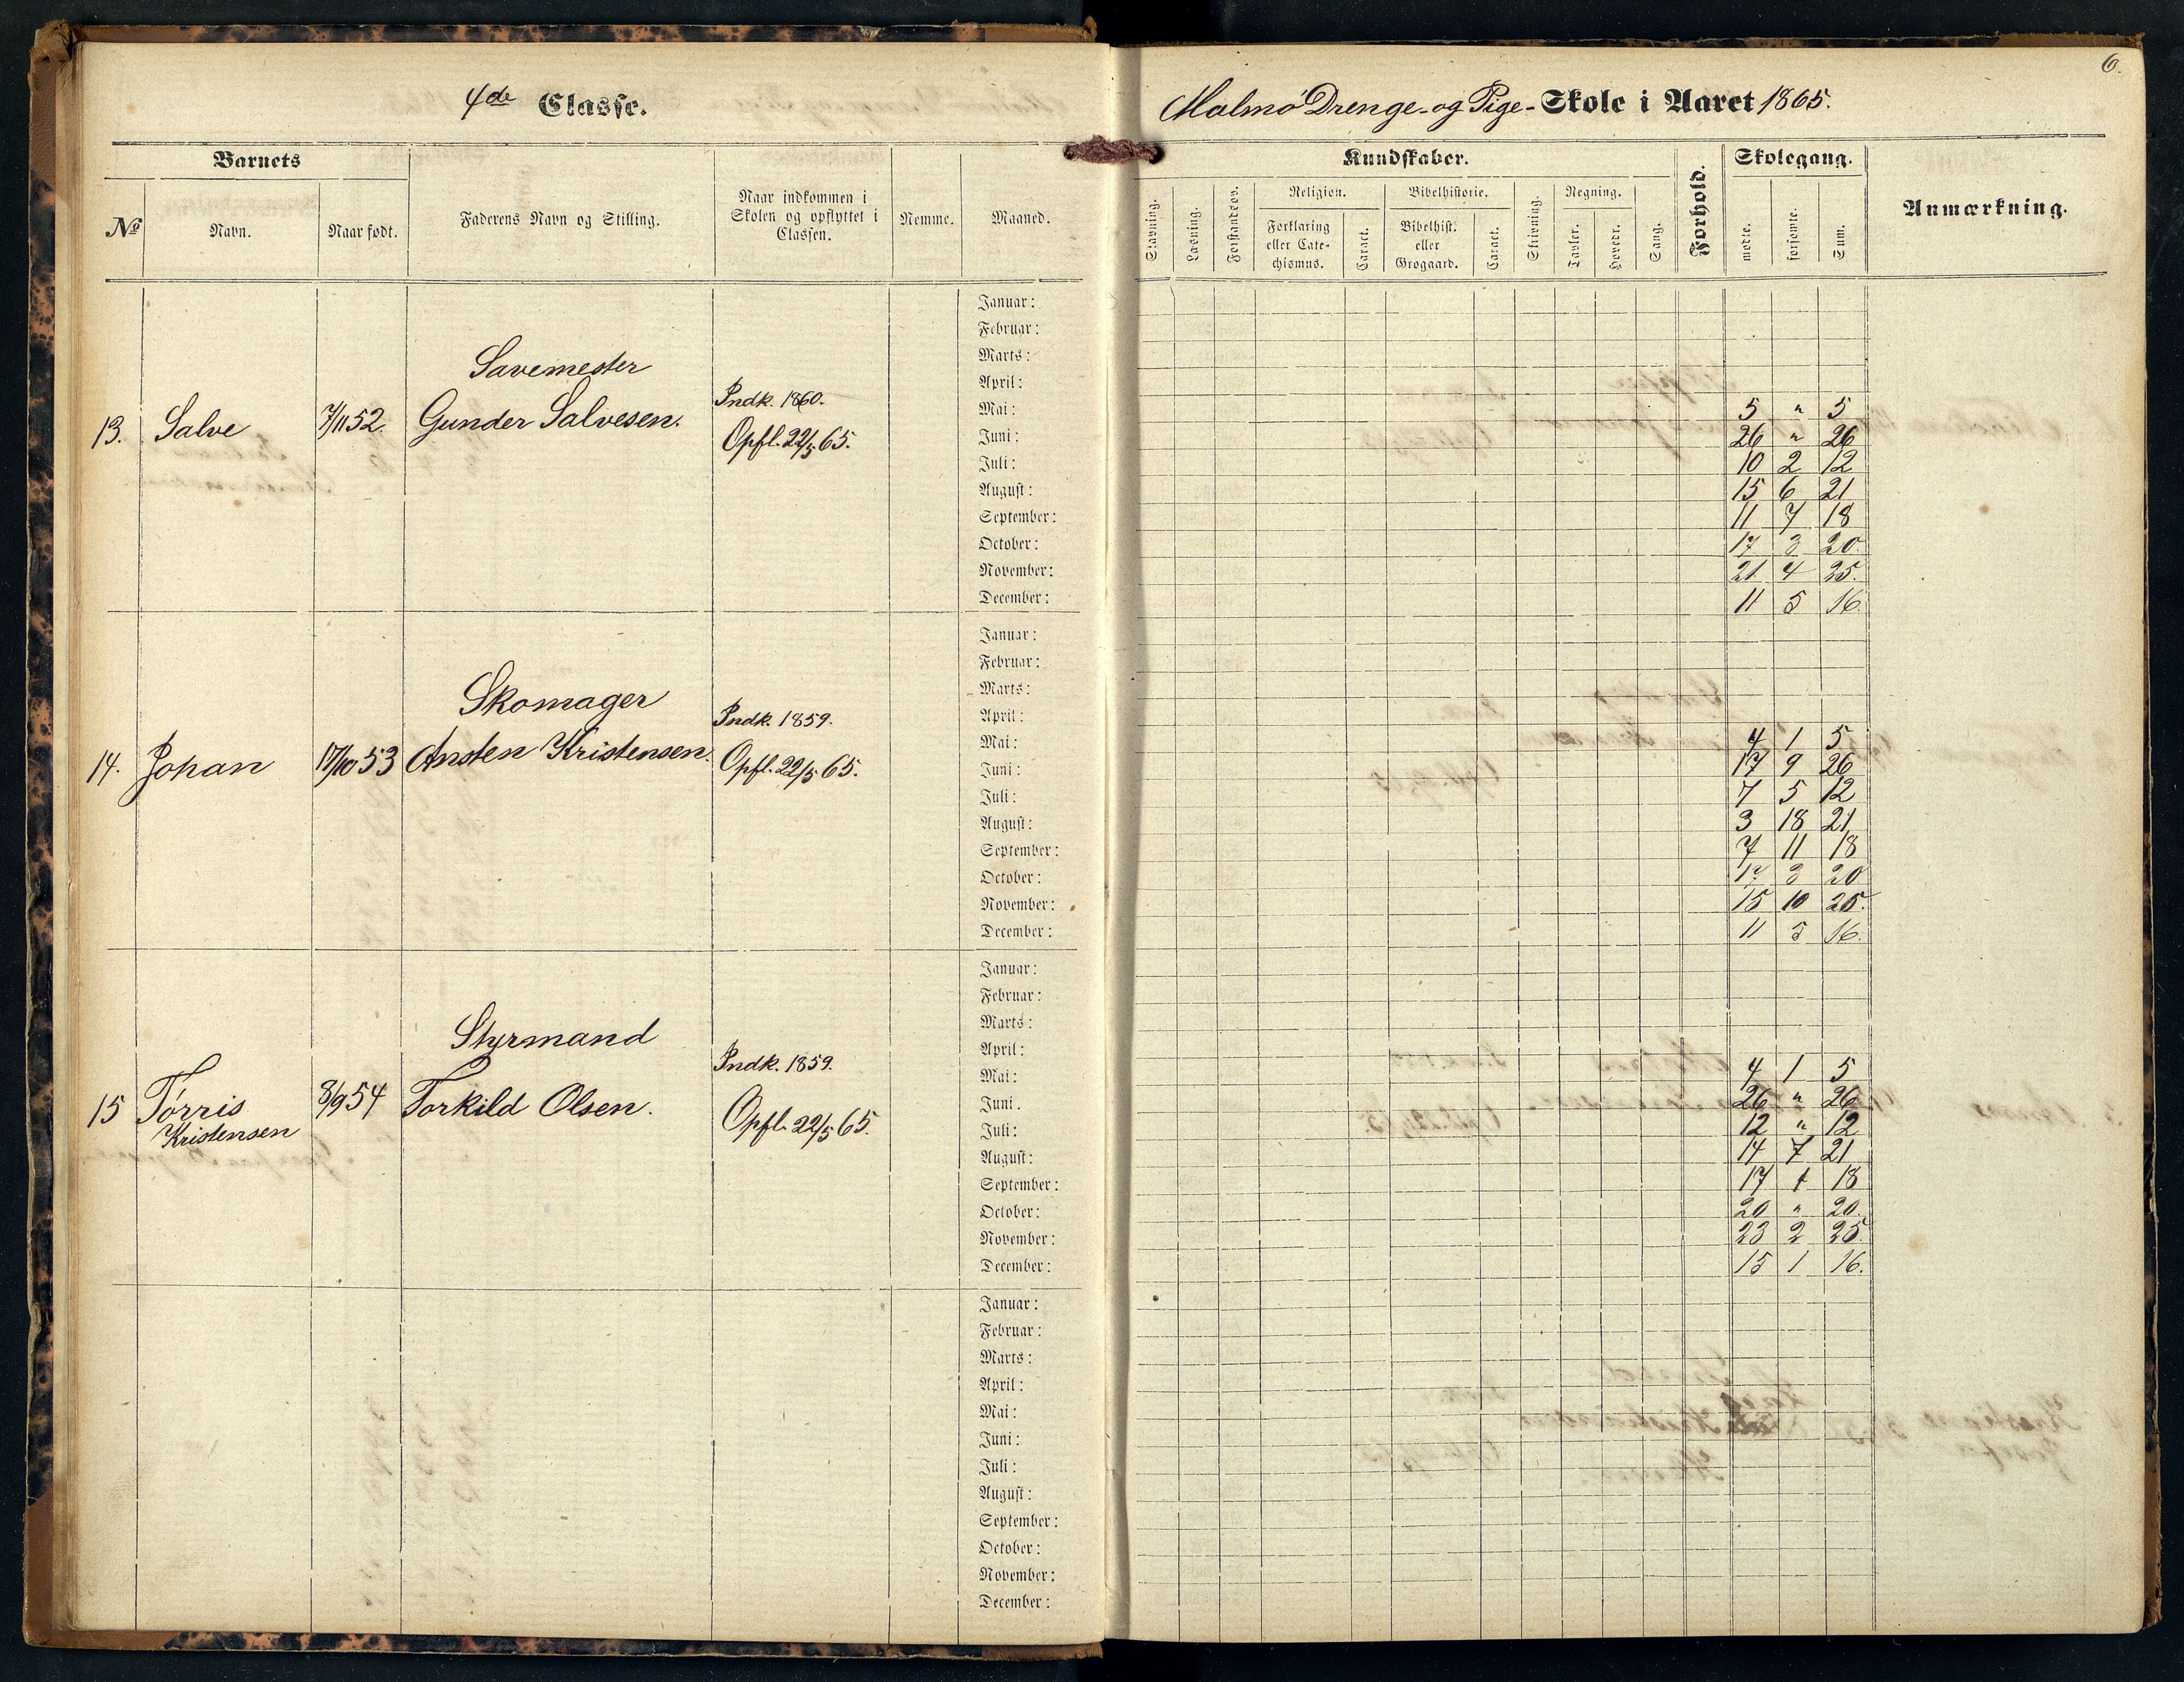 4de Classe.
Malmø Drenge- og Pige- Skole i Aaret 1865.
6.
Barnets
Kundskaber.
Forhold.
Skolegang.
Anmærkning.
№
Navn.
Naar født.
Faderens Navn og Stilling.
Naar indkommen i
Skolen og opflyttet i
Classen.
Nemme.
Maaned.
Stavning.
Læsning.
Forstandsøv.
Religion.
Forklaring
eller Cate-
chismus.
Caract.
Bibelhistorie.
Bibelhist.
eller
Grogaard.
Caract.
Skrivning.
Regning.
Tavler.
Hovedr.
Sang.
mødte.
forsømte.
Sum.
13. Salve 7/11 52. Savemester
Gunder Salvesen.
Indk. 1860.
Opfl. 22/5 65.
Januar:
Februar:
Marts:
April:
Mai: 5 " 5
Juni: 26 " 26
Juli: 10 2 12
August: 15 6 21
September: 11 7 18
October: 17 3 20.
November: 21 4 25.
December: 11 5 16.
14. Johan 17/10 53 Skomager
Ansten Kristensen.
Indk. 1859.
Opfl. 22/5 65.
Januar:
Februar:
Marts:
April:
Mai: 4 1 5
Juni: 17 9 26
Juli: 7 5 12
August: 3 18 21
September: 7 11 18
October: 17 3 20
November: 15 10 25.
December: 11 5 16.
15 Tørris
Kristensen
8/9 54 Styrmand
Torkild Olsen.
Indk. 1859.
Opfl. 22/5 65.
Januar:
Februar:
Marts:
April:
Mai: 4 1 5
Juni. 26 " 26
Juli: 12 " 12
August: 14 7 21
September: 17 1 18
October: 20 " 20.
November: 23 2 25.
December: 15 1 16.
Januar:
Februar:
Marts:
April:
Mai:
Juni:
Juli:
August:
September:
October:
November:
December: